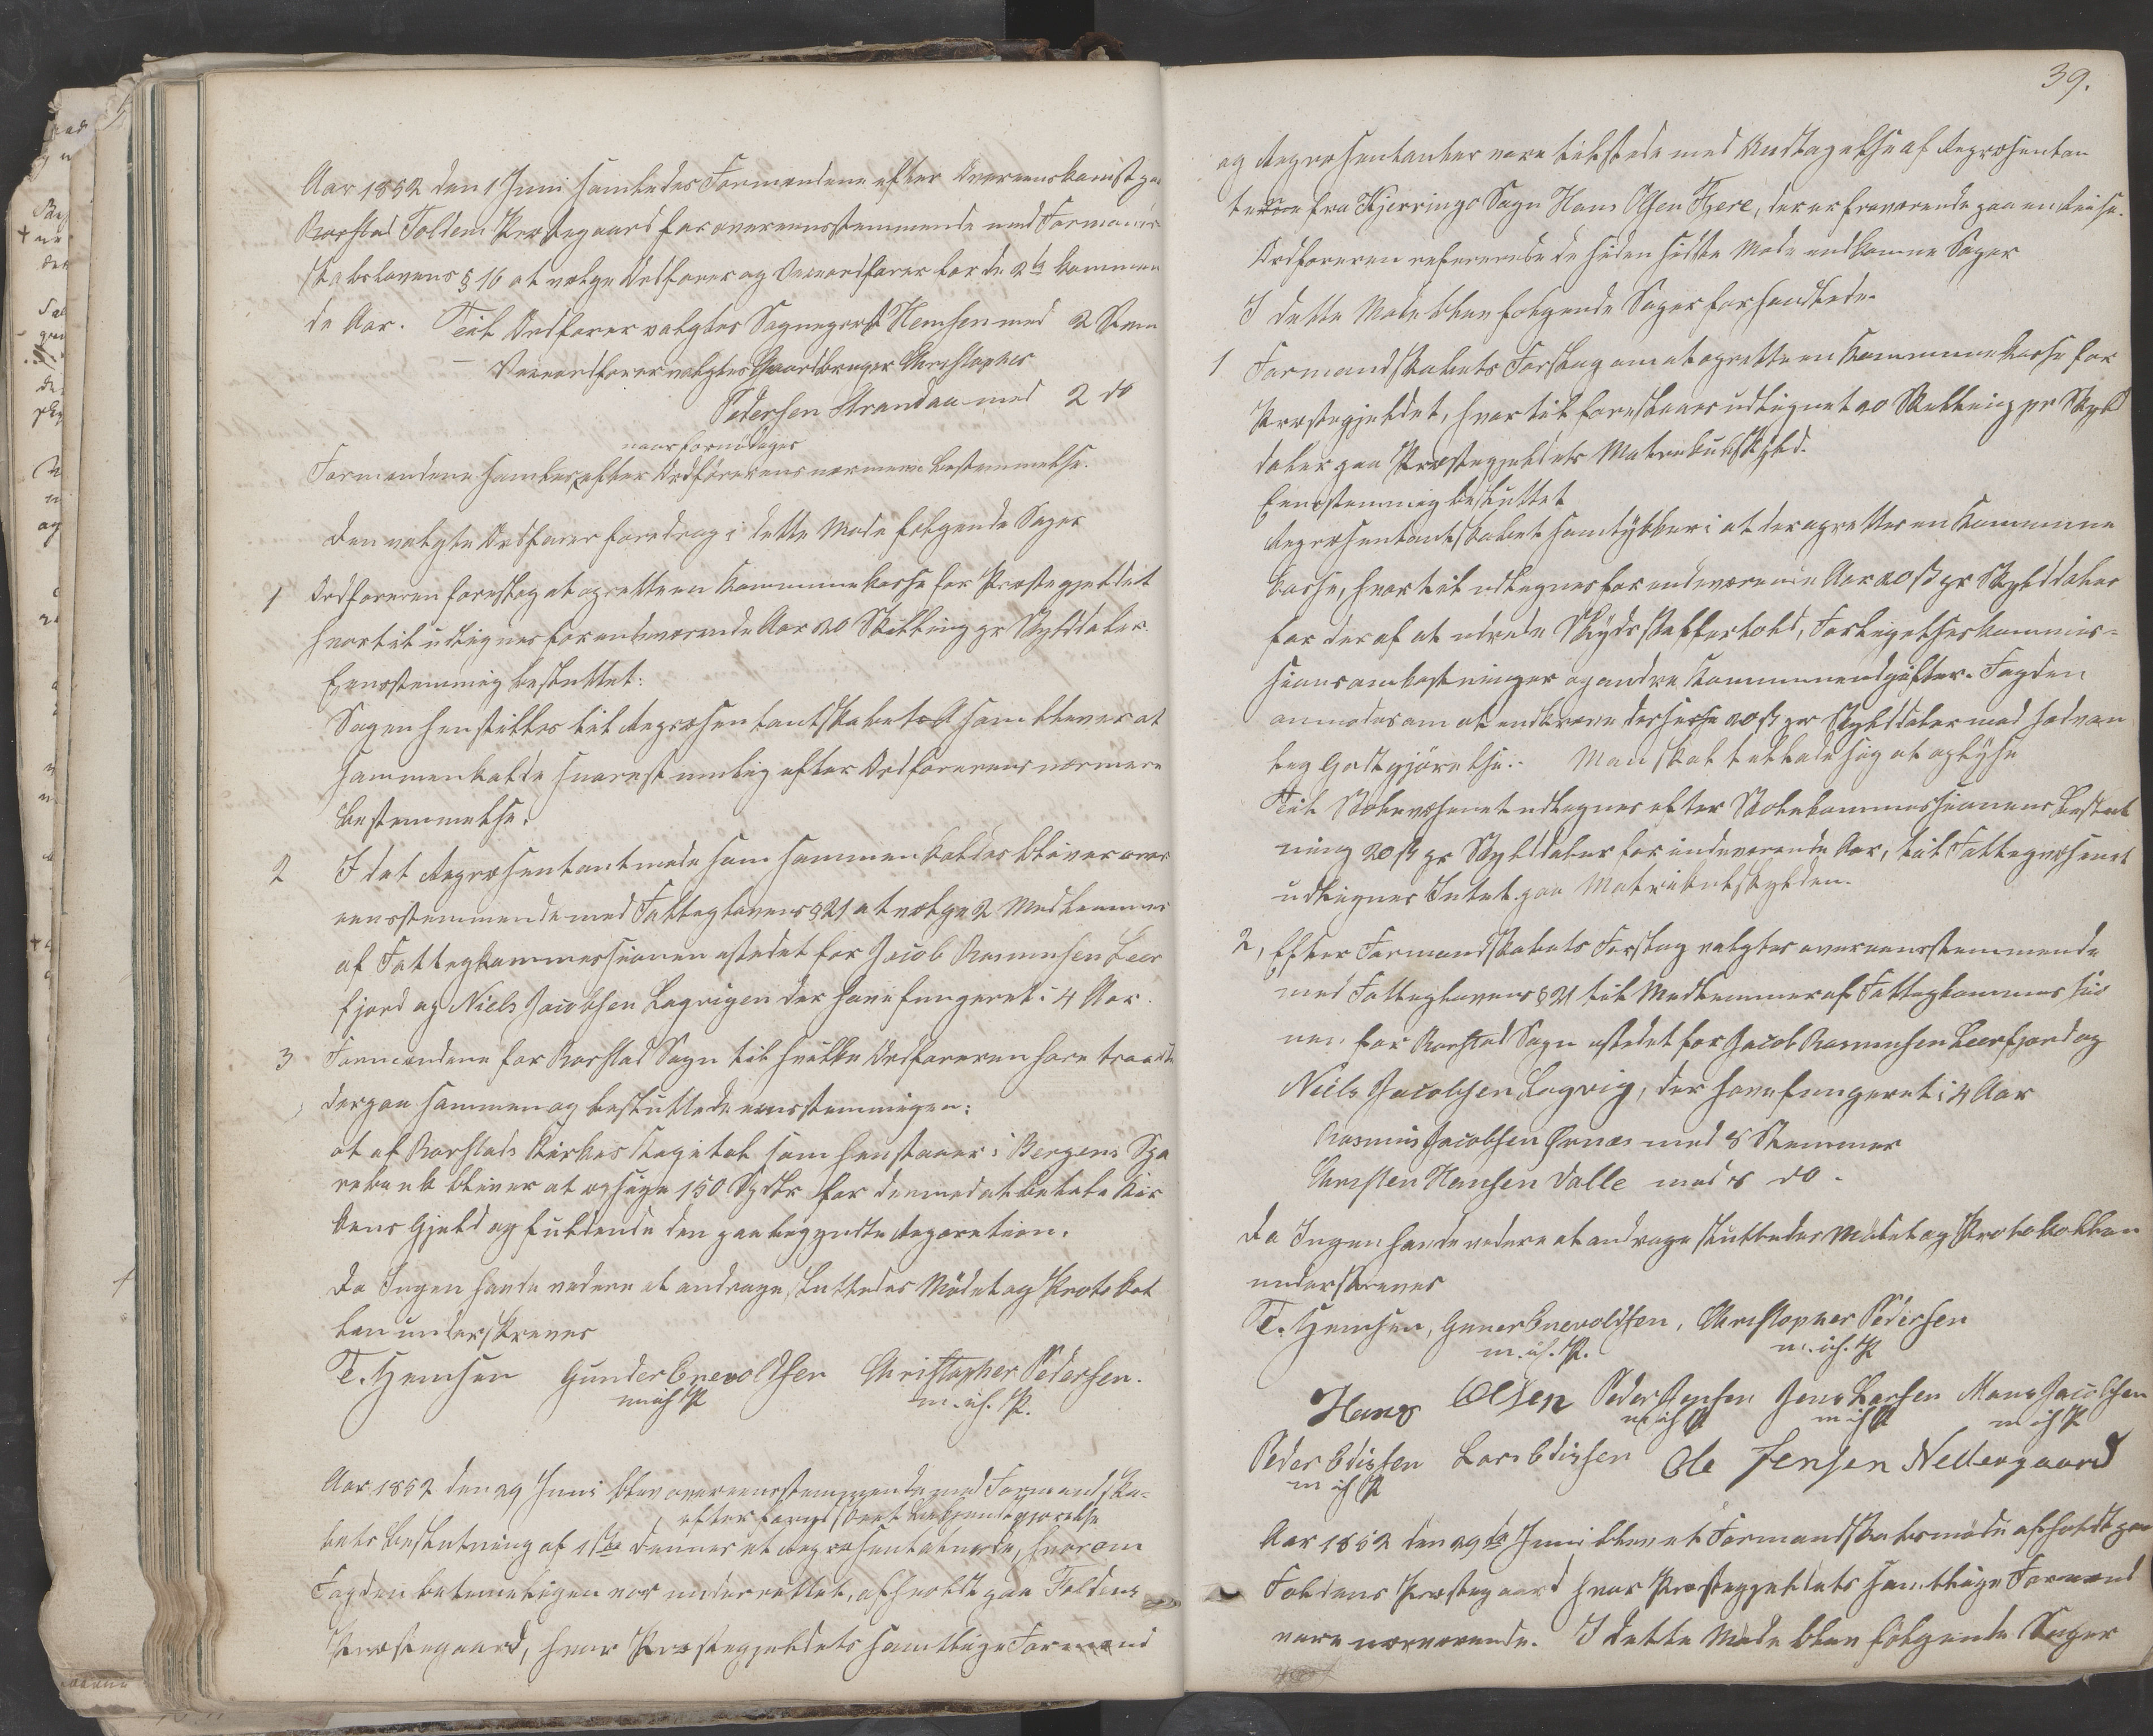 Aar 1852 den 1 Juni samledes Formændene efter Overeenskomst paa
Rorstad Foldens Præstegaard for overeensstemmende med Formand-
skabslovens § 16 at vælge Ordfører og Viceordfører for de 2de kommen
de Aar. Til Ordfører valgtes Sognepræst Hemsen med 2 Stem
– Viceordfører valgtes Gaardbruger Christopher
Pedersen Strandaa med 2 do
naar fornødiges
Formændene samles efter Ordførerens nærmere Bestemmelse.
Den valgte Ordfører foredrog i dette Møde følgende Sager
1 Ordføreren foreslog at oprette en Kommunekasse for Præstegjeldet
hvortil udlignes for indeværende Aar 20 Skilling pr Skylddaler.
Eensstemmig besluttet:
Sagen henstilles til Repræsentantskabet som bliver at
sammenkalde snarest muelig efter Ordførerens nærmere
Bestemmelse.
2 I det Repræsentantmøde som sammenkaldes bliver over
eensstemmende med Fattiglovens § 21 at vælge 2 Medlemmer
af Fattigkommissionen istedet for Jacob Rasmussen Leer
fjord og Niels Jacobsen Lagvigen der have fungeret i 4 Aar.
3 Formændene for Rorstad Sogn til hvilke Ordføreren hører traadte
derpaa sammen og besluttede eensstemmigen:
at af Rorstads Kirkes Kapital som henstaaer i Bergens Spa
rebank bliver at opsige 150 Spdlr for dermed at betale Kir
kens Gjeld og fuldende den paabegyndte Reparation.
Da Ingen havde videre at andrage, sluttedes Mødet og Protokol
len underskreves
T. Hemsen Gunder Enevoldsen Christopher Pedersen.
m. ih. P. m. ih. P.
Aar 1852 den 29 Juni blev overeensstemmende med Formandska-
efter forudskeet Bekjendtgjørelse
bets Beslutning af 1ste dennes et Repræsentatmøde, hvorom
Fogden betimeligen var underrettet, afholdt paa Foldens
Præstegaard, hvor Præstegjeldets samtlige Formænd
39.
og Repræsentanter vare tilstede med Undtagelse af Repræsentan
ten fra Kjerringø Sogn Hans Olsen Fjere, der er fraværende paa en Reise.
Ordføreren refererede de siden sidste Møde indkomne Sager
I dette Møde blev følgende Sager forhandlede.
1 Formandskabets Forslag om at oprette en Kommunekasse for
Præstegjeldet, hvortil foreslaaes udlignet 20 Skilling pr Skyld
daler paa Præstegjeldets Matrikulskyld.
Eensstemmig besluttet
Repræsentantskabet samtykker i at der oprettes en Kommune
kasse, hvortil udlignes for indeværende Aar 20 ß pr Skylddaler
for deraf at udrede Skydsskafferhold, Forligelseskommis-
sionsomkostninger og andre Kommuneudgifter. Fogden
anmodes om at indkræve disse 20 ß pr Skylddaler mod sædvan
lig Godtgjørelse. Man skal tillade sig at oplyse
Til Skolevæsenet udlignes efter Skolekommissionens Beslut
ning 20 ß pr Skylddaler for indeværende Aar, til Fattigvæsenet
udlignes Intet paa Matrikulskylden.
2, Efter Formandskabets Forslag valgtes overeensstemmende
med Fattiglovens § 21 til Medlemmer af Fattigkommissio
nen for Rorstad Sogn istedet for Jacob Rasmussen Leerfjord og
Niels Jacobsen Lagvig, der have fungeret i 4 Aar
Rasmus Jacobsen Ørnæs med 8 Stemmer
Christen Hansen Valle med 8 do.
Da Ingen havde videre at andrage sluttedes Mødet og Protokollen
underskreves
T. Hemsen, Gunder Enevoldsen, Christopher Pedersen
m. ih. P. m. ih. P
Hans Olsen Peder Jensen Jens Larsen Mons Jacobsen
m ih P m ih P m ih P
Peder Edissen Lars Edissen Ole Jensen Nedergaard
m ih P
Aar 1852 den 29de Juni blev et Formandskabsmøde afholdt paa
Foldens Præstegaard hvor Præstegjeldets samtlige Formænd
vare nærværende. I dette Møde blev følgende Sager